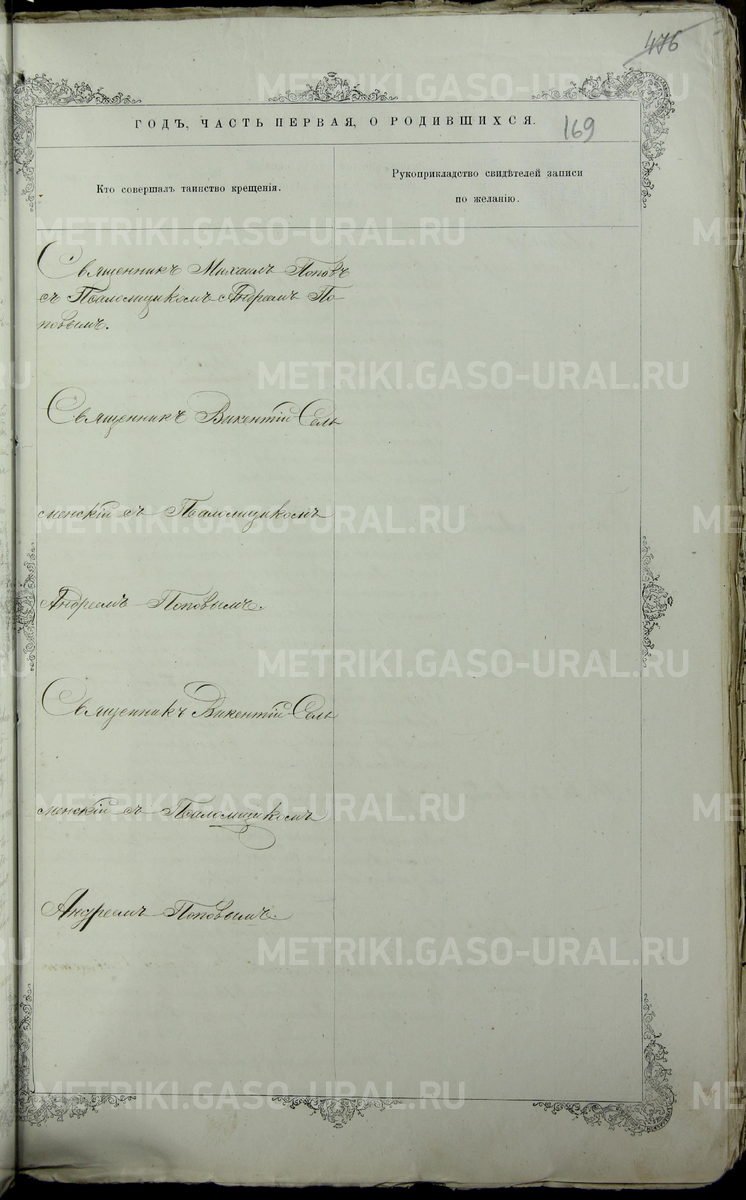 476
169
ГОДЪ, ЧАСТЬ ПЕРВАЯ, О РОДИВШИХСЯ.
Кто совершалъ таинство крещенія.
Рукоприкладство свидѣтелей записи
по желанію.
Священникъ Михаилъ Поповъ
съ Псаломщикомъ Андреемъ По-
повымъ.
Священникъ Викентій Сель
менскій съ Псаломщикомъ
Андреемъ Поповымъ.
Священникъ Викентій Сель
менскій съ Псаломщикомъ
Андреемъ Поповымъ.
METRIKI.GASO-URAL.RU